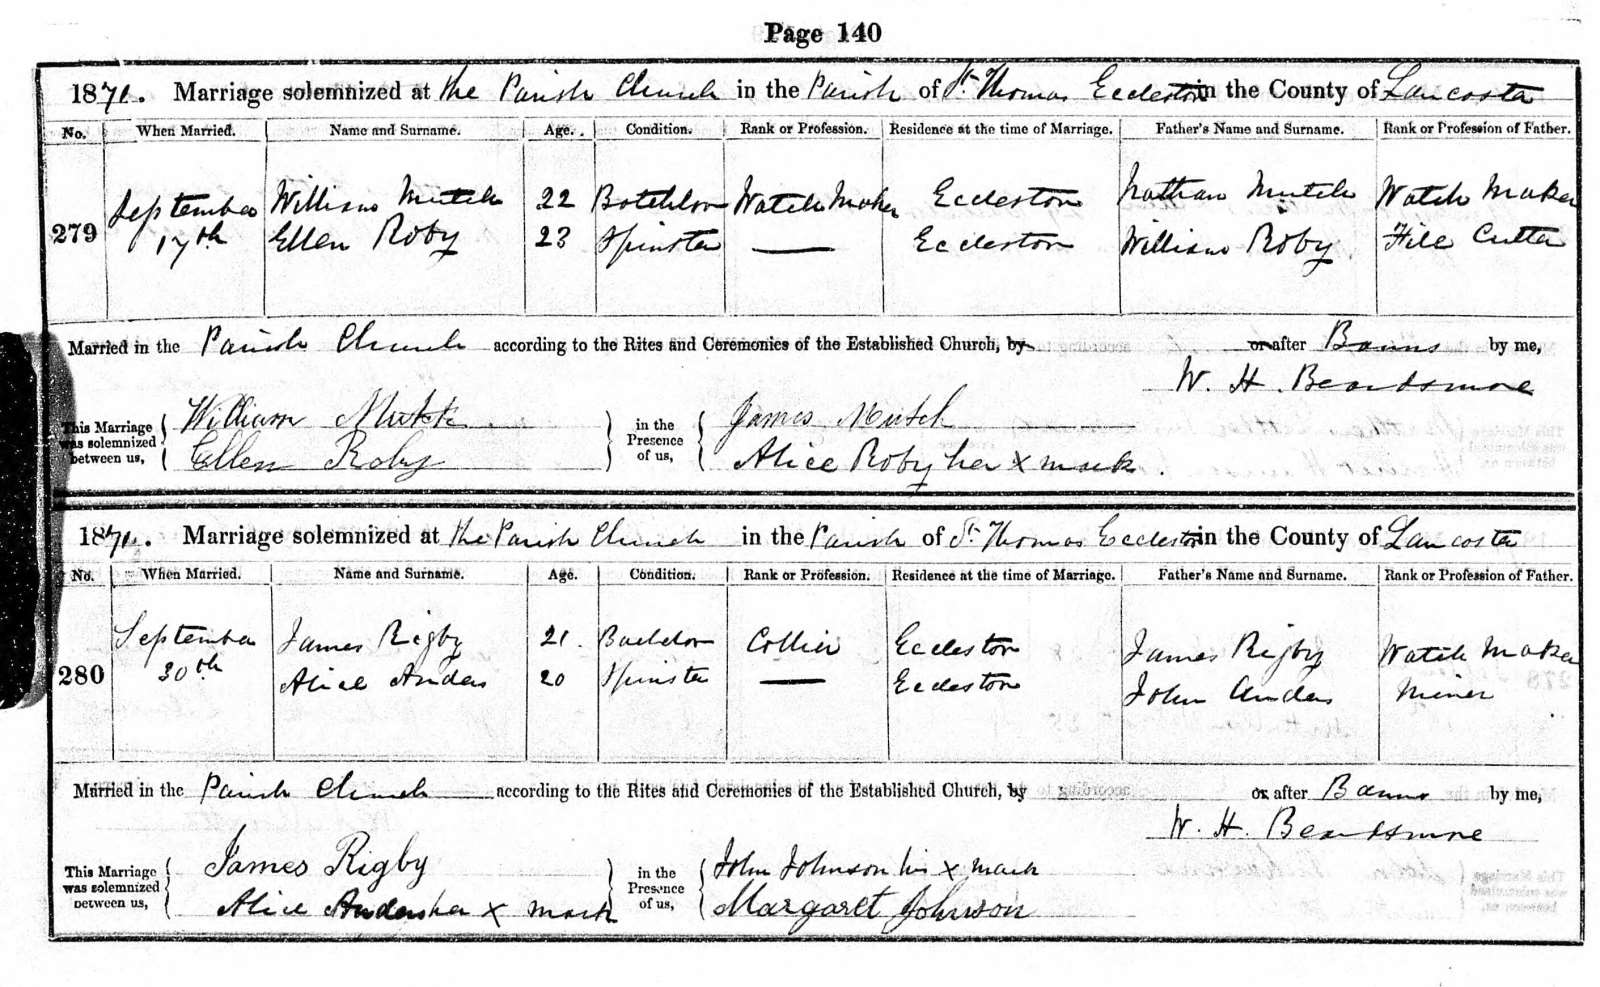 Page 140
1871. Marriage solemnized at the Parish Church in the Parish of St. Thomas Eccleston in the County of Lancaster
No. When Married. Name and Surname. Age. Condition. Rank or Profession. Residence at the time of Marriage. Father's Name and Surname. Rank or Profession of Father.
279 September 17th William Mutch 22 Batchelor Watch Maker Eccleston Nathan Mutch Watch Maker
Ellen Roby 23 Spinster — Eccleston William Roby File Cutter
Married in the Parish Church according to the Rites and Ceremonies of the Established Church, by or after Banns by me,
W. H. Beardsmore
This Marriage was solemnized between us, William Mutch Ellen Roby in the Presence of us, James Mutch Alice Roby her x mark.
1871. Marriage solemnized at the Parish Church in the Parish of St. Thomas Eccleston in the County of Lancaster
No. When Married. Name and Surname. Age. Condition. Rank or Profession. Residence at the time of Marriage. Father's Name and Surname. Rank or Profession of Father.
280 September 30th James Rigby 21. Bachelor Collier Eccleston James Rigby Watch Maker
Alice Anders 20 Spinster — Eccleston John Anders Miner
Married in the Parish Church according to the Rites and Ceremonies of the Established Church, by or after Banns by me,
W. H. Beardsmore
This Marriage was solemnized between us, James Rigby Alice Anders her x mark in the Presence of us, John Johnson his x mark Margaret Johnson